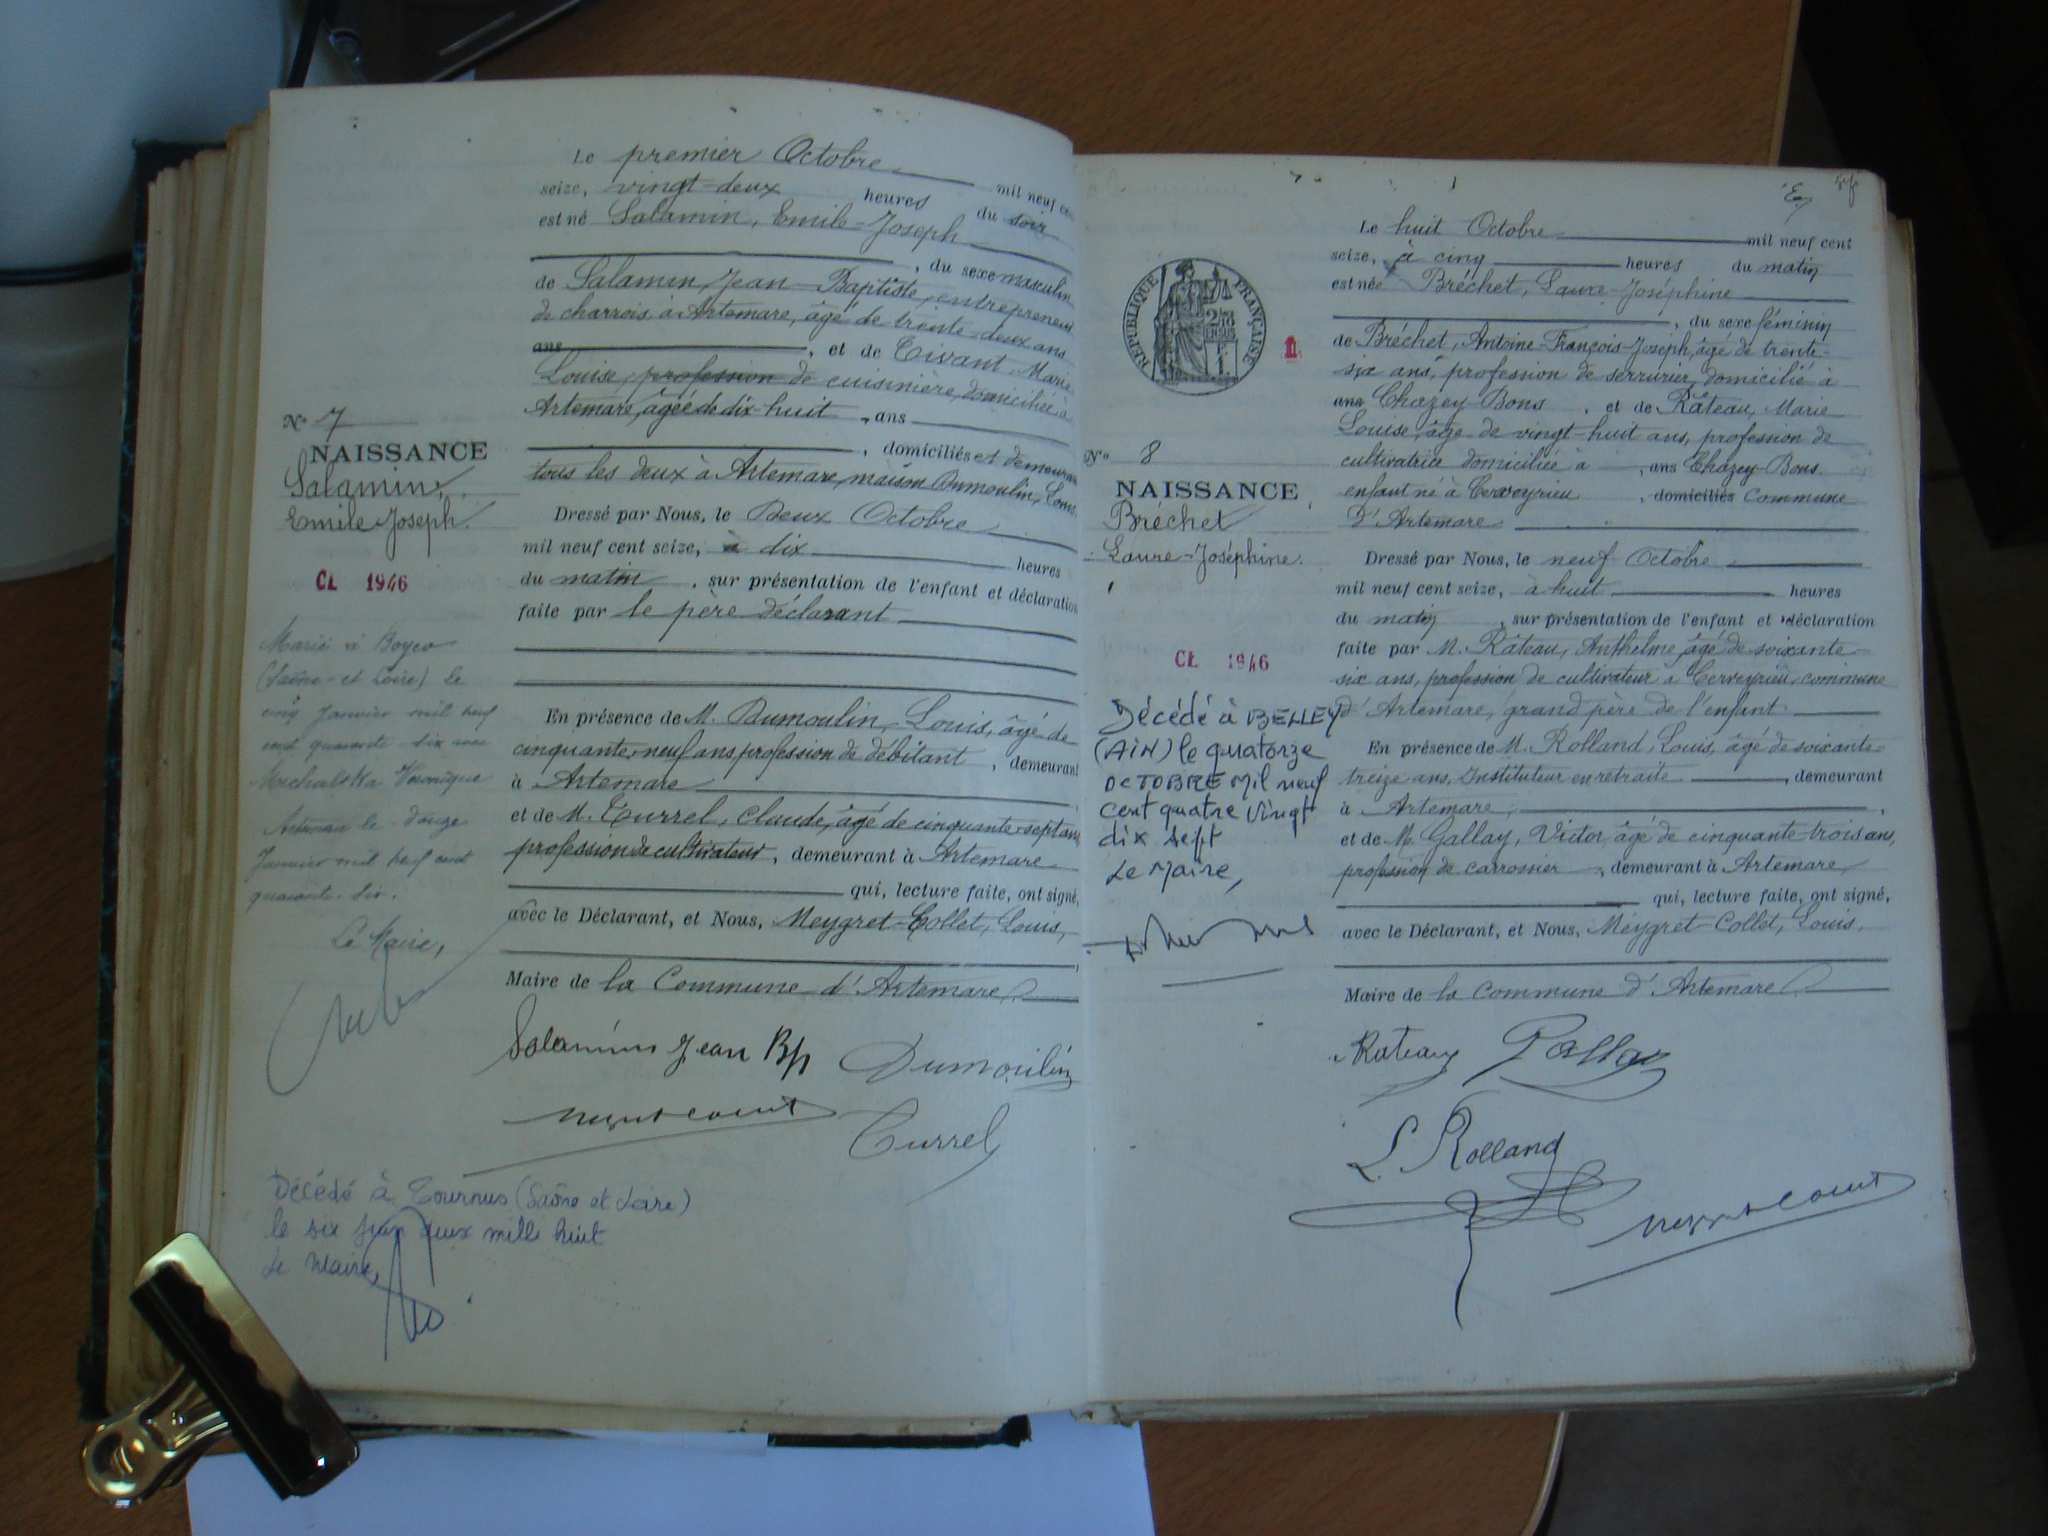 Le premier Octobre mil neuf ce
seize, vingt-deux heures du soir
est né Salamin, Emile-Joseph
, du sexe masculin
de Salamin, Jean-Baptiste, entrepreneur
de charrois à Artemare, âgé de trente-deux ans
ans, et de Tivant Marie
Louise, profession de cuisinière, domiciliée à
Artemare, âgée de dix-huit, ans
, domiciliés et demeurant
tous les deux à Artemare, maison Dumoulin, Louis
Dressé par Nous, le Deux Octobre
mil neuf cent seize, à dix heures
du matin, sur présentation de l'enfant et déclaration
faite par le père déclarant
En présence de M. Dumoulin, Louis, âgé de
cinquante-neuf ans profession de débitant, demeurant
à Artemare
et de M. Turrel, Claude, âgé de cinquante-sept ans,
profession de cultivateur, demeurant à Artemare
qui, lecture faite, ont signé,
avec le Déclarant, et Nous, Meygret-Collet, Louis,
Maire de la Commune d'Artemare
Salamin Jean Bp Dumoulin
Turrel
N° 7
NAISSANCE
Salamin,
Emile-Joseph.
CL 1946
Marié à
(Saône-et-Loire) le
cinq Janvier mil neuf
cent quarante-six avec
Véronique
Artemare le douze
Janvier mil neuf cent
quarante-six.
Le Maire,
Décédé à Tournus (Saône et Loire)
le six juin deux mille huit
Le Maire,
Le huit Octobre mil neuf cent
seize, à cinq heures du matin
est née Bréchet, Laure-Joséphine
, du sexe féminin
de Bréchet, Antoine-François-Joseph, âgé de trente-
six ans, profession de serrurier, domicilié à
ans Chazey-Bons, et de Râteau, Marie
Louise, âge de vingt-huit ans, profession de
cultivatrice domiciliée à, ans Chazey-Bons
enfant né à Cerveyrieu, domiciliés commune
D'Artemare
Dressé par Nous, le neuf Octobre
mil neuf cent seize, à huit heures
du matin, sur présentation de l'enfant et déclaration
faite par M. Râteau, Anthelme, âgé de soixante-
six ans, profession de cultivateur à Cerveyrieu, commune
d'Artemare, grand père de l'enfant
En présence de M. Rolland, Louis, âgé de soixante-
treize ans, Instituteur en retraite, demeurant
à Artemare,
et de M. Gallay, Victor, âgé de cinquante-trois ans,
profession de carrossier, demeurant à Artemare
qui, lecture faite, ont signé,
avec le Déclarant, et Nous, Meygret-Collet, Louis,
Maire de la Commune d'Artemare
Rateau Gallay
L. Rolland
RÉPUBLIQUE FRANÇAISE
N° 8
NAISSANCE
Bréchet
Laure-Joséphine.
CL 1946
Décédé à BELLEY
(AIN) le quatorze
OCTOBRE Mil neuf
cent quatre vingt
dix sept
Le Maire,